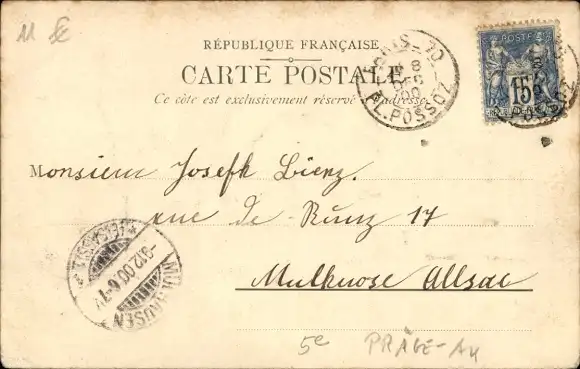 11 
RÉPUBLIQUE FRANÇAISE
CARTE POSTALE
Ce côté est exclusivement réservé à l'adresse
PARIS
PL. POSSOZ
POSTE
15
Monsieur Joseph Bienz.
rue de Runz 17
Mulhuose Allsac
MÜLHAUSEN
9.12.00.6-7V
5e PRÀGE-AU